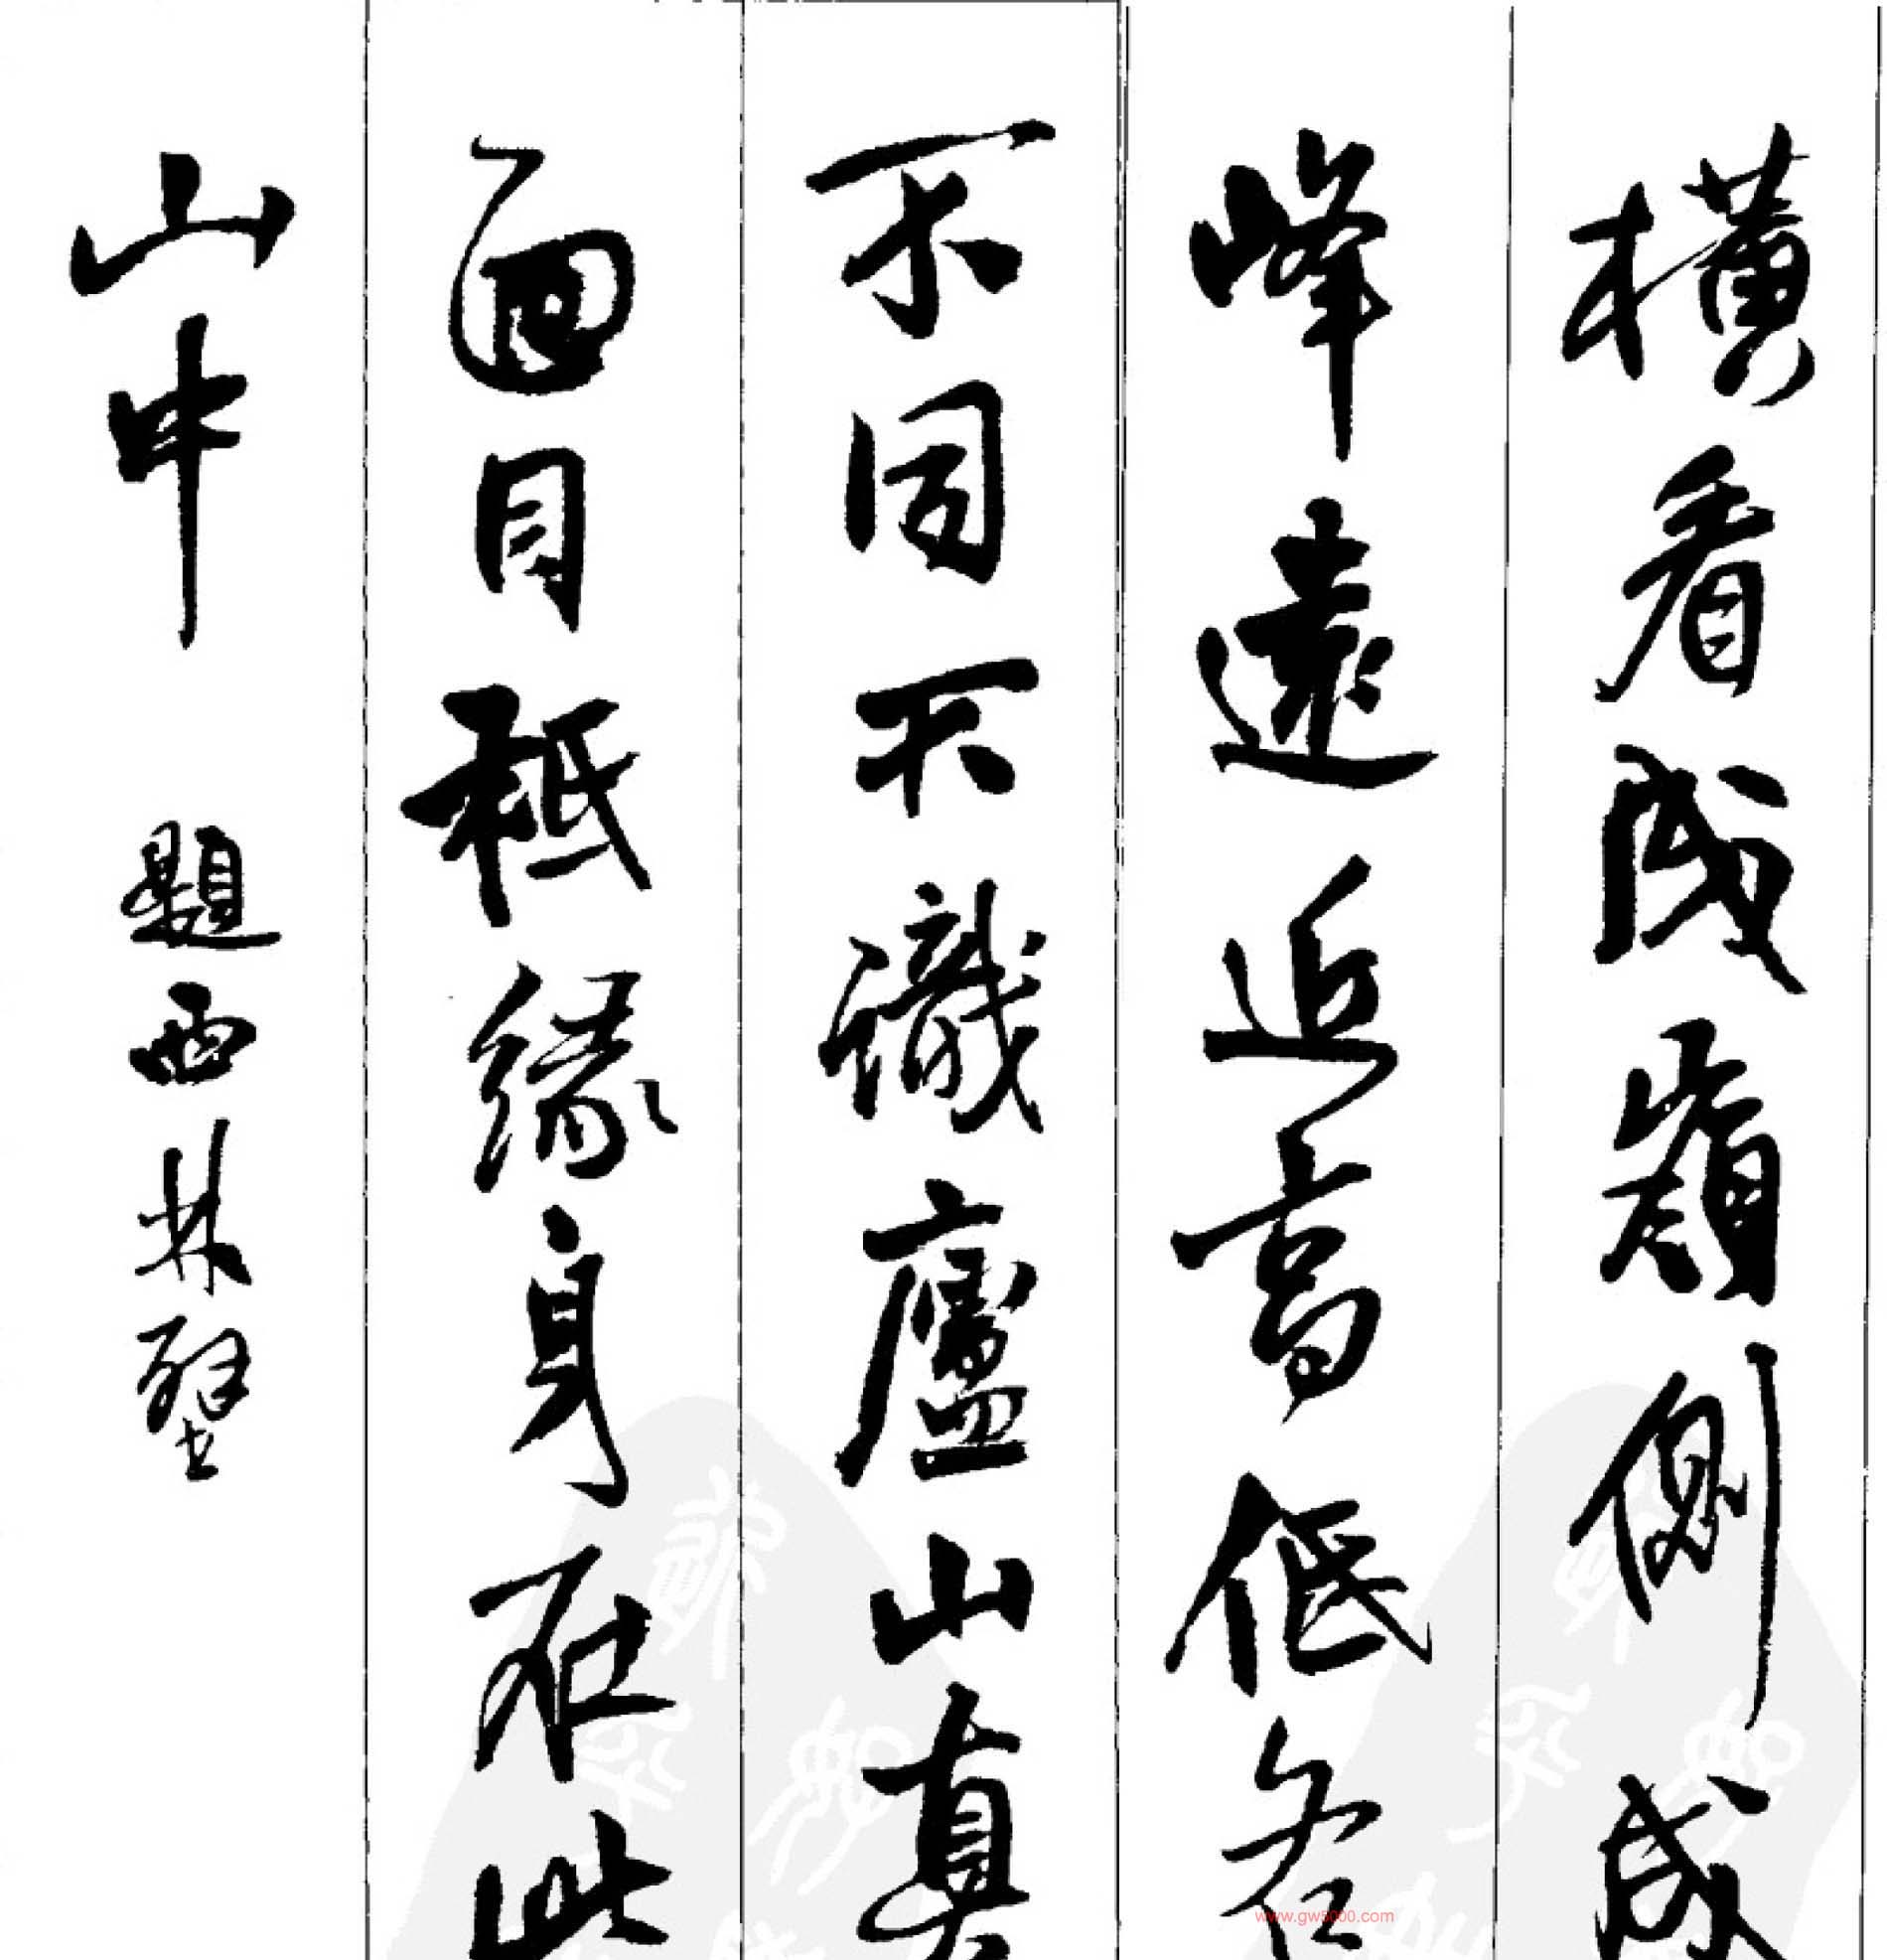 橫看成嶺側成
峰遠近高低各
不同不識廬山真
面目秖緣身在此
山中 題西林壁
www.gw5000.com